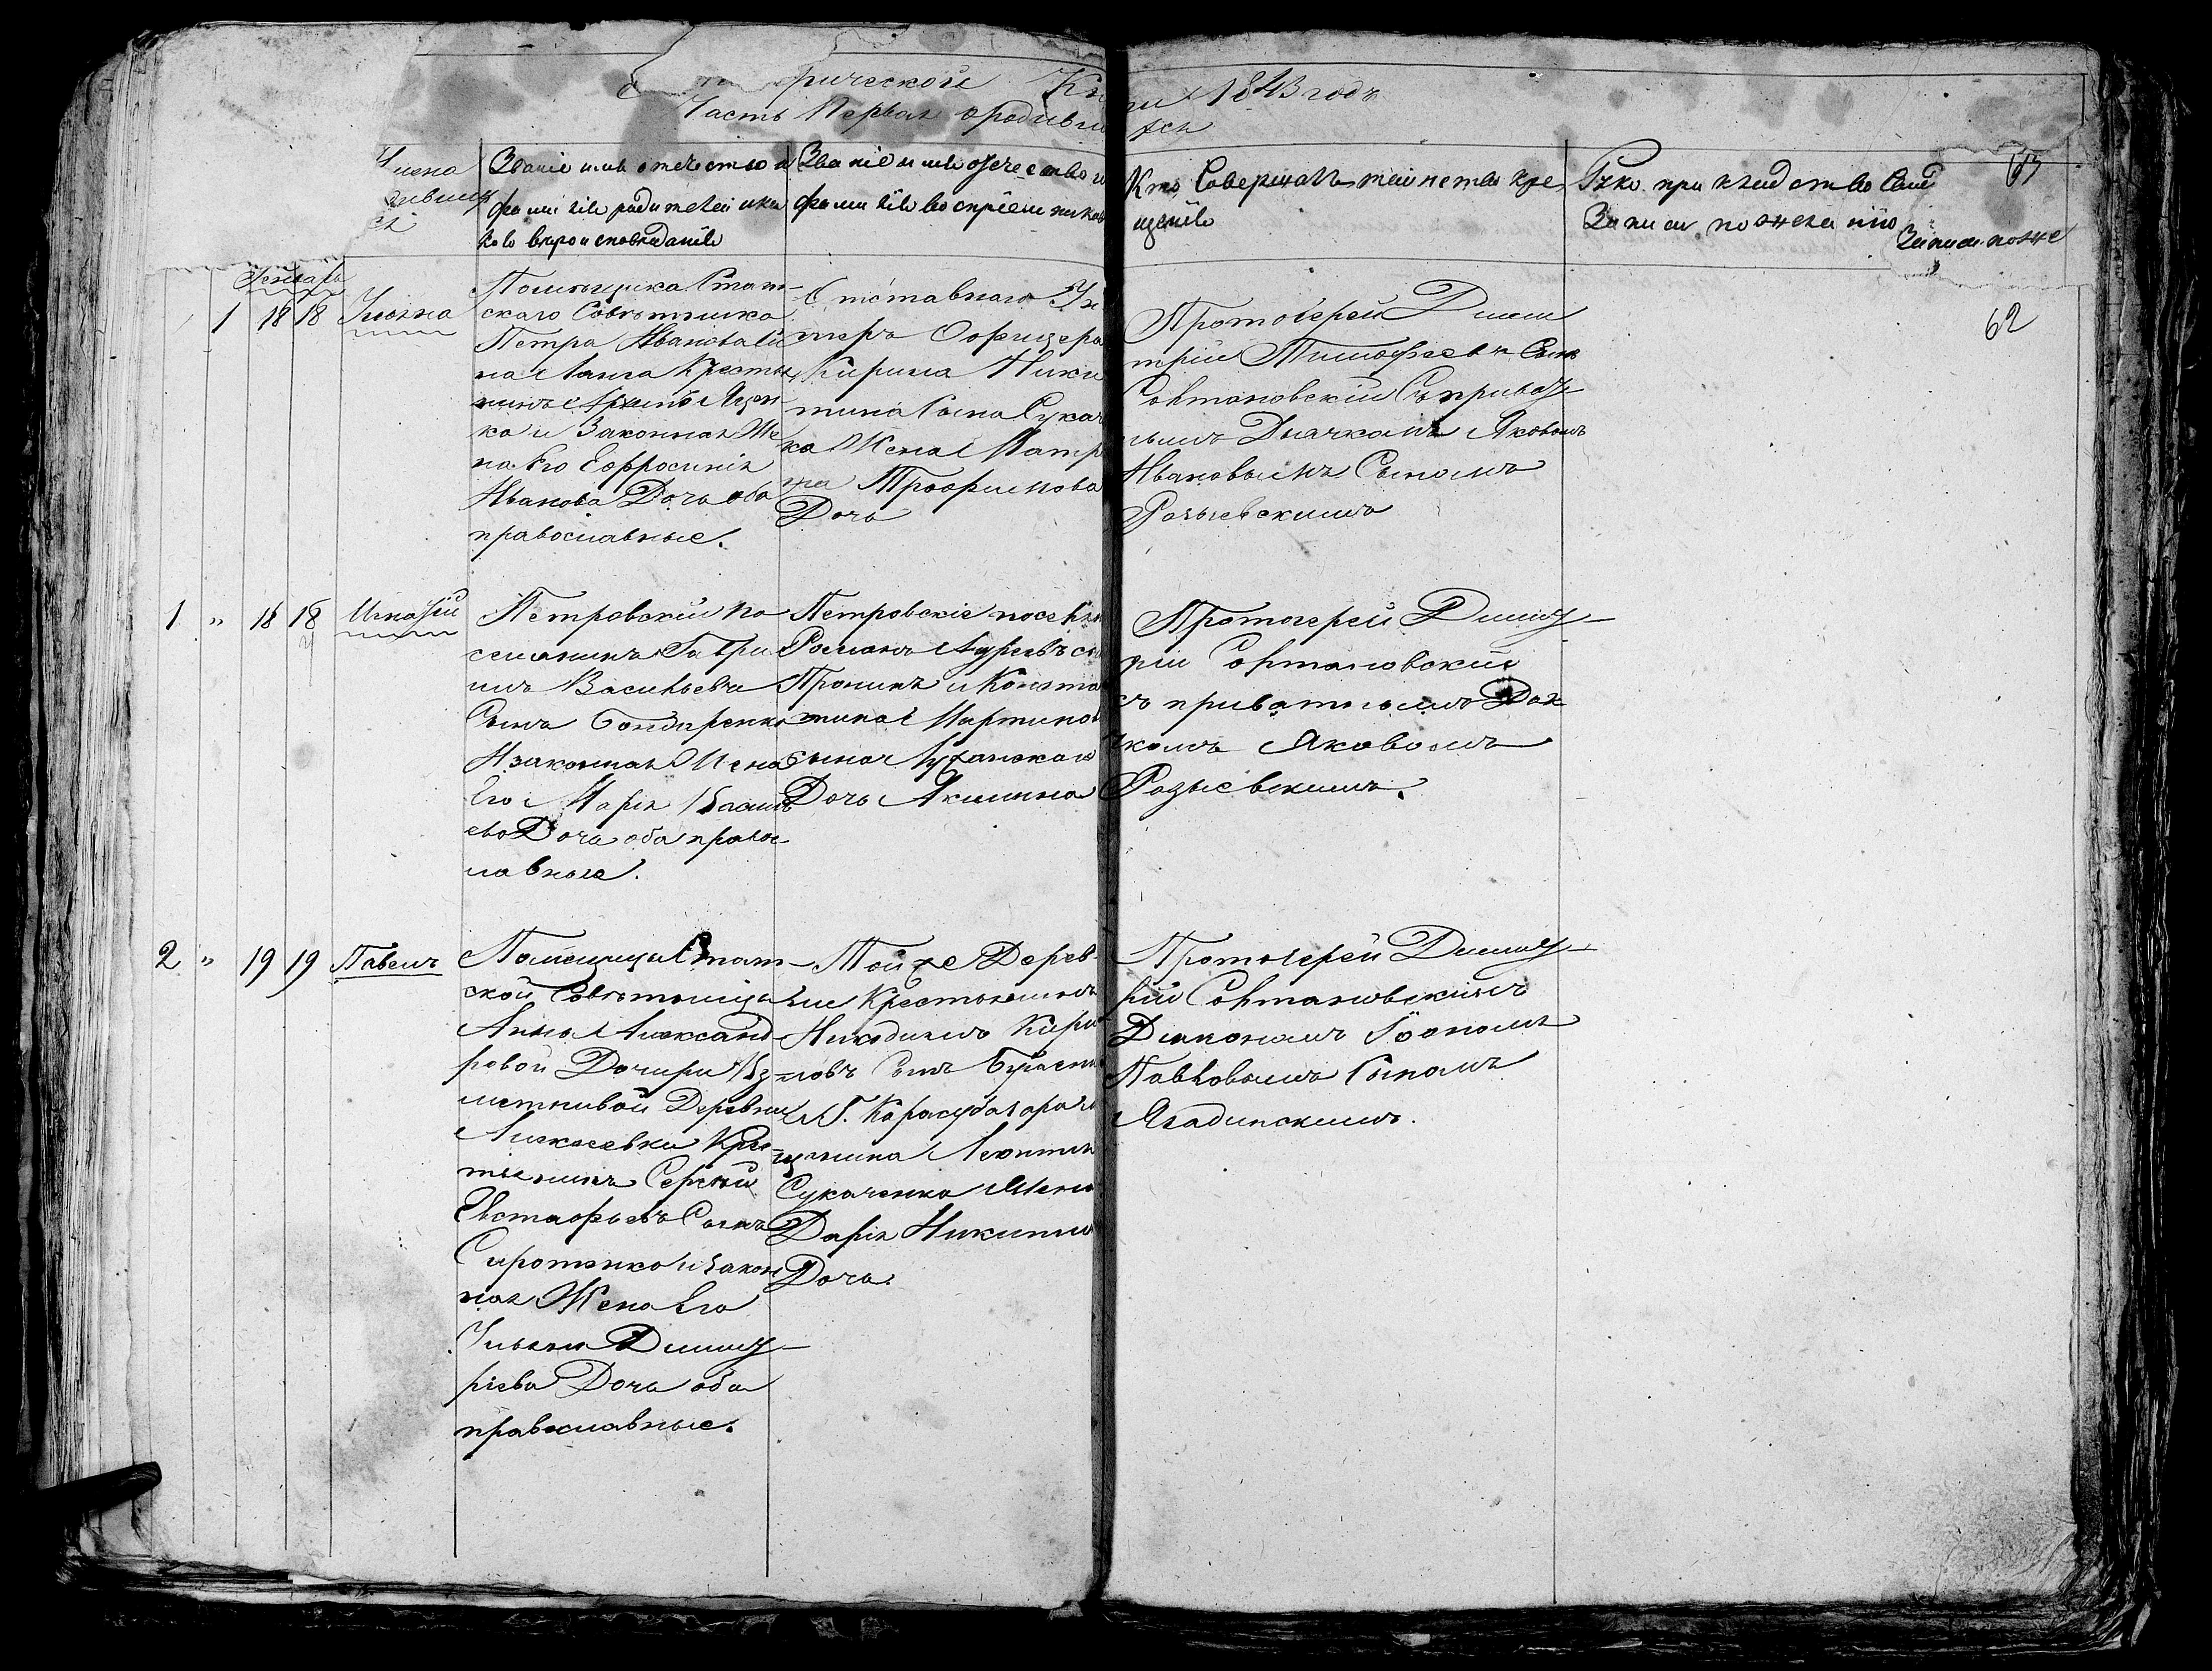 рической Кн
ги 1843 года
Часть Первая о родивши
хся
Имена
Званіе имя отечество и
фамилія родителей и ка
кого вѣроисповѣданія
Званіе имя отечество и
фамилія воспріемниковъ
Кто Совершалъ таинство кре
щенія
Руко прикладство Свид
Записи по желанію
записи поже
63
62
Генварь
1 18 18
Помѣщика Стат
скаго Совѣтника
Петра Иванова
на Ланга Крестья
нинъ
ка и Законная Же
на Его Евфросинія
Иванова Дочь оба
православные.
Отставнаго Ун
теръ Офицера
Кирила Ники
тина Сына Сукач
ка Жена Матр
на Трофимова
Дочь
Протоіерей Дими
трій Тимофеевъ Сынъ
Софтановскій Съ приват
нымъ Дьячкомъ Яковомъ
Ивановымъ Сыномъ
Разыевскимъ
1 " 18 18 Игнатій
Петровскій по
селянинъ Гаври
илъ Васильевъ
Сынъ Бондаренко
И законная Жена
Его Марія Васил
ева Дочь оба право
лавныя.
Петровскіе поселян
Романъ сы
Пронинъ и Конста
тина Мартинов
сына Луханскаго
Дочь Акилина
Протоіерей Димит
рій Софтановскій
съ приватнымъ Дья
чкомъ Яковомъ
Разыевскимъ.
2 " 19 19 Павелъ
Помещицы Стат
ской Совѣтницы
Анны Александ
ровой Дочери Из
метнивой Деревни
Алексеевки Крес
тьянинъ Сергѣй
Евстафьевъ Сынъ
Сиротенко и Закон
ная Жена Его
Ульяна Димит
ріева Дочь оба
православные.
Той же Дерев
ни Крестьянинъ
Никодимъ Кири
ловъ Сынъ
и Г. Карасубазара м
щанина Леонтия
Сукаченка Жена
Дарія Никитина
Дочь
Протоіерей Димит
рій Софтановскій съ
Діакономъ Іоаномъ
Павловымъ Сыномъ
Ягадинскимъ.